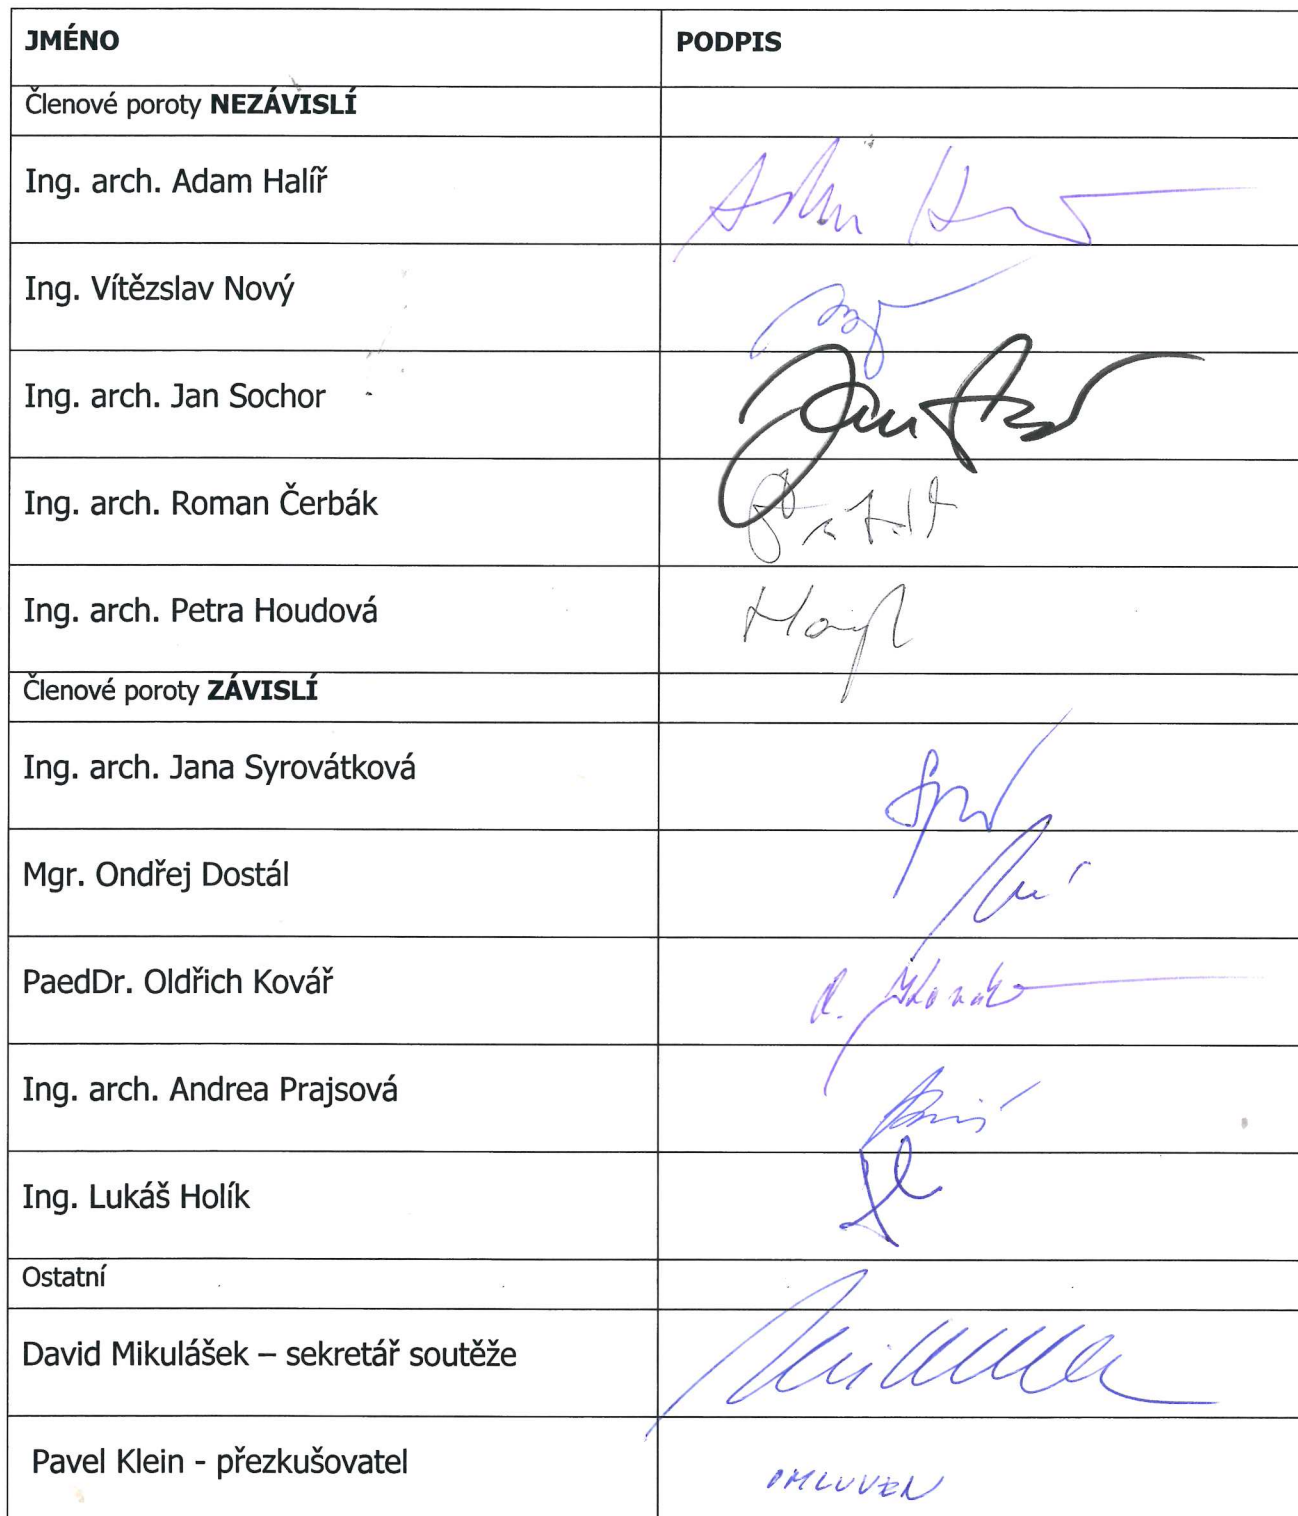 JMÉNO PODPIS
Členové poroty NEZÁVISLÍ
Ing. arch. Adam Halíř
Ing. Vítězslav Nový
Ing. arch. Jan Sochor
Ing. arch. Roman Čerbák
Ing. arch. Petra Houdová
Členové poroty ZÁVISLÍ
Ing. arch. Jana Syrovátková
Mgr. Ondřej Dostál
PaedDr. Oldřich Kovář
Ing. arch. Andrea Prajsová
Ing. Lukáš Holík
Ostatní
David Mikulášek – sekretář soutěže
Pavel Klein - přezkušovatel OMLUVEN